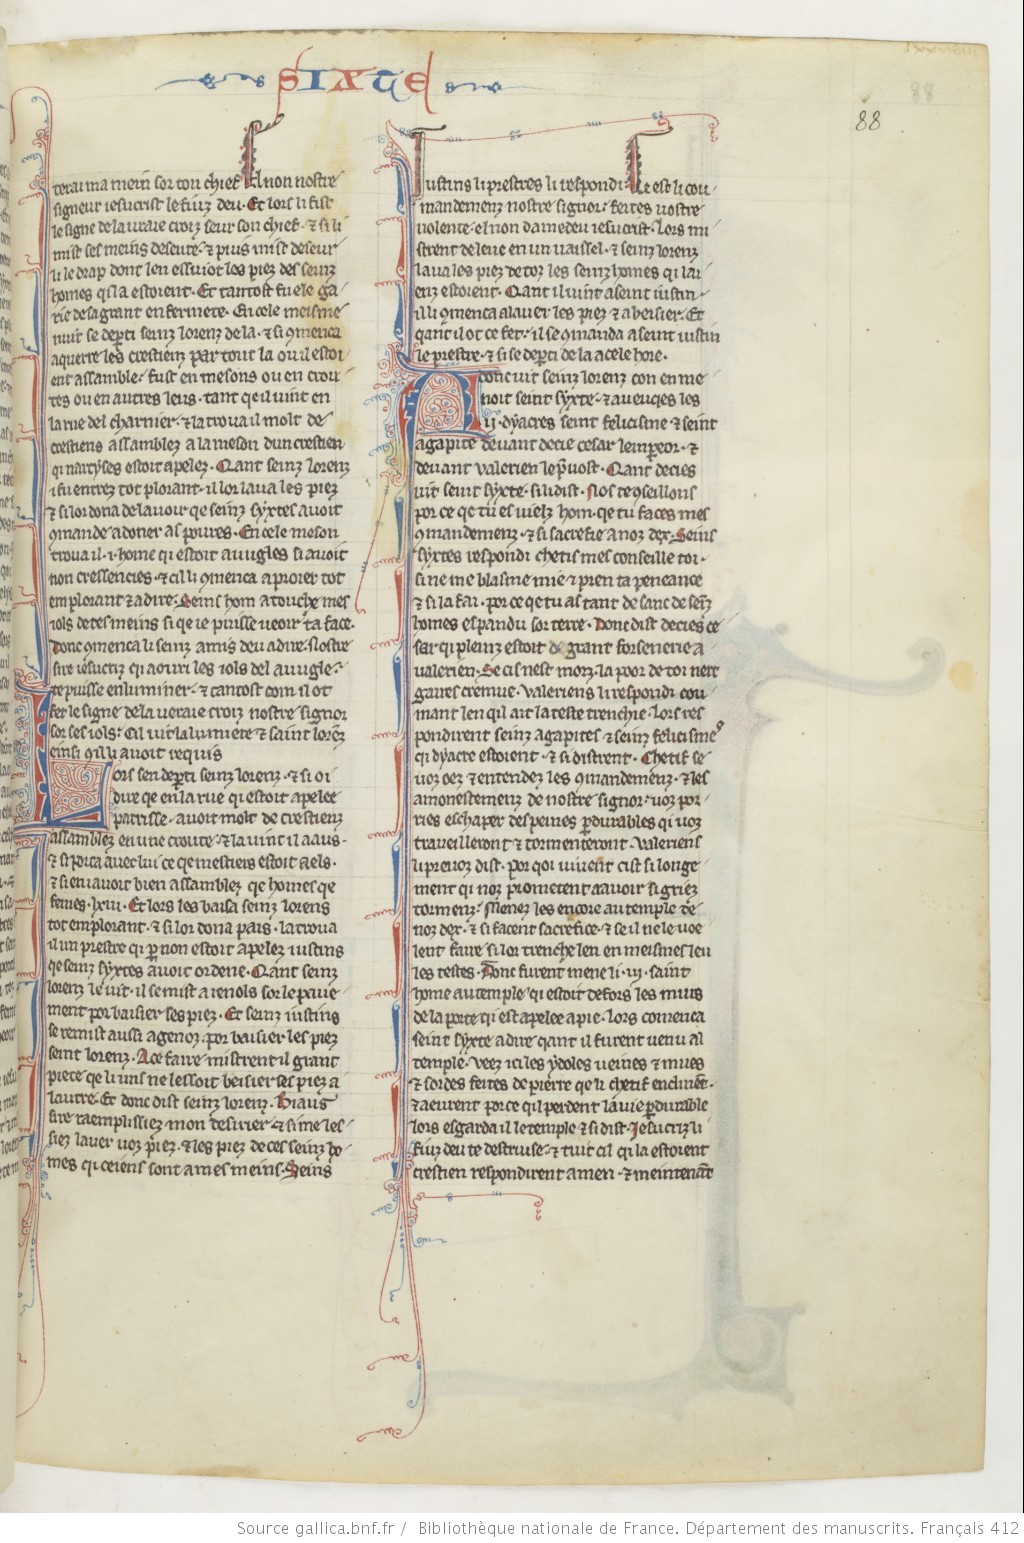 SIXTE
88
terai ma mein sor ton chief. El non nostre
signeur iesucrist le fiuz deu. Et lors li fist
le signe de la uraie croiz seur son chief. & si li
mist ses meins deseure. & puis mist deseur
li le drap dont len essuiot les piez des seinz
homes qi la estoient. Et tantost fu ele ga
rie de sa grant enfermete. En cele meisme
nuit se departi seinz lorenz de la. & si 9menca
a querre les crestiens par tout la ou il estoi
ent assamble. fust en mesons ou en crou
tes ou en autres leus. tant qe il uint en
la rue del charnier. & la troua il molt de
crestiens assamblez a la meson dun crestien
qi narcyses estoit apelez. Qant seinz lorenz
i fu entrez tot plorant. il lor laua les piez
& si lor dona de lauoir qe seinz syxtes auoit
9mande a doner as poures. En cele meson
troua il .i. home qi estoit auugles si auoit
non cressencies. & cil li 9menca a proier tot
em plorant & a dire. Seins hom atouche mes
iols de tes meins si qe ie puisse ueoir ta face.
Donc 9menca li seinz amis deu a dire. Nostre
sire iesucriz qi aouri les iols del auugle.
te puisse enluminer. & tantost com il ot
fet le signe de la ueraie croiz nostre signor
sor ses iols. Cil uit la lumiere & saint lorenz
einsi qil li auoit reqis
Lors sen departi seinz lorenz. & si oi
dire qe en la rue qi estoit apelee
patrisse. auoit molt de crestienz
assamblez en une croute. & la uint il a aus.
& si porta auec lui ce qe mestiers estoit a els.
& si en i auoit bien assamblez qe homes qe
femes .lxiii. Et lors les baisa seinz lorens
tot emplorant. & si lor dona pais. la troua
il un prestre qi par non estoit apelez iustins
qe seinz syxtes auoit ordene. Qant seinz
lorenz le uit. il se mist a ienols sor le paue
ment por baisier ses piez. Et seinz iustins
se remist aussi a genoz. por baisier les piez
seint lorenz. A ce faire mistrent il grant
piece qe li uns ne lessoit beisier ses piez a
lautre. Et donc dist seinz lorenz. Biaus
sire raemplissiez mon desirier & si me les
siez lauer uoz piez. & les piez de ces seinz ho
mes qi ceiens sont a mes meins. Seins
Iustins li prestres li respondi. Ce est li cou
mandemenz nostre signor. fertes uostre
uolente. el non damedeu iesucrist. Lors mi
strent de leue en un uaissel. & seinz lorenz
laua les piez de toz les seinz homes qi lai
enz estoient. Qant il uint a seint iustin
il li 9menca a lauer les piez & a beisier. Et
qant il ot ce fet. il se 9manda a seint iustin
le prestre. & si se departi de la a cele hore.
Donc uit seinz lorenz con en me
noit seint syxte. & aueuqes les
.ii. dyacres seint felicisme & seint
agapite deuant decie cesar lempereor. &
deuant ualerien le preuost. Qant decies
uit seint syxte. si li dist. Nos te 9seillons
por ce qe tu es uielz hom. qe tu faces mes
9mandemenz. & si sacrefie a noz dex. Seins
syxtes respondi chetis mes conseille toi.
si ne me blasme mie & pren ta peneance
& si la fai. por ce qe tu as tant de sanc de seinz
homes espandu sor terre. Donc dist decies ce
sar qi pleinz estoit de grant forsenerie a
ualerien. Se cis nest morz. la poor de toi nert
gaires cremue. Ualeriens li respondi cou
mant len qil ait la teste trenchie. Lors res
pondirent seinz agapites & seinz felicismes
qi dyacre estoient. & si distrent. Chetif se
uoz oez & entendez les 9mandemenz. & les
amonestemenz de nostre signor. uoz por
ries eschaper des peines pardurables qi uoz
trauelleront & tormenteront. Ualeriens
li preuoz dist. Por qoi uiuent cist si longe
ment qi noz prometent a auoir si griez
tormenz. Menez les encore au temple de
noz dex. & si facent sacrefice. & se il nele uoe
lent faire si lor trenche len en meismes leu
les testes. Donc furent mene li .iii. saint
home au temple qi estoit defors les murs
de la porte qi est apelee apie. Lors comenca
seint syxte a dire qant il furent uenu al
temple. Veez ici les ydoles ueines & mues
& sordes feites de pierre qe li chetif enclinent.
& aeurent por ce qil perdent la uie pardurable
lors esgarda il le temple & si dist. Iesucriz li
fiuz deu te destruise. & tuit cil qi la estoient
crestien respondirent amen. & meintenant
Source gallica.bnf.fr / Bibliothèque nationale de France. Département des manuscrits. Français 412